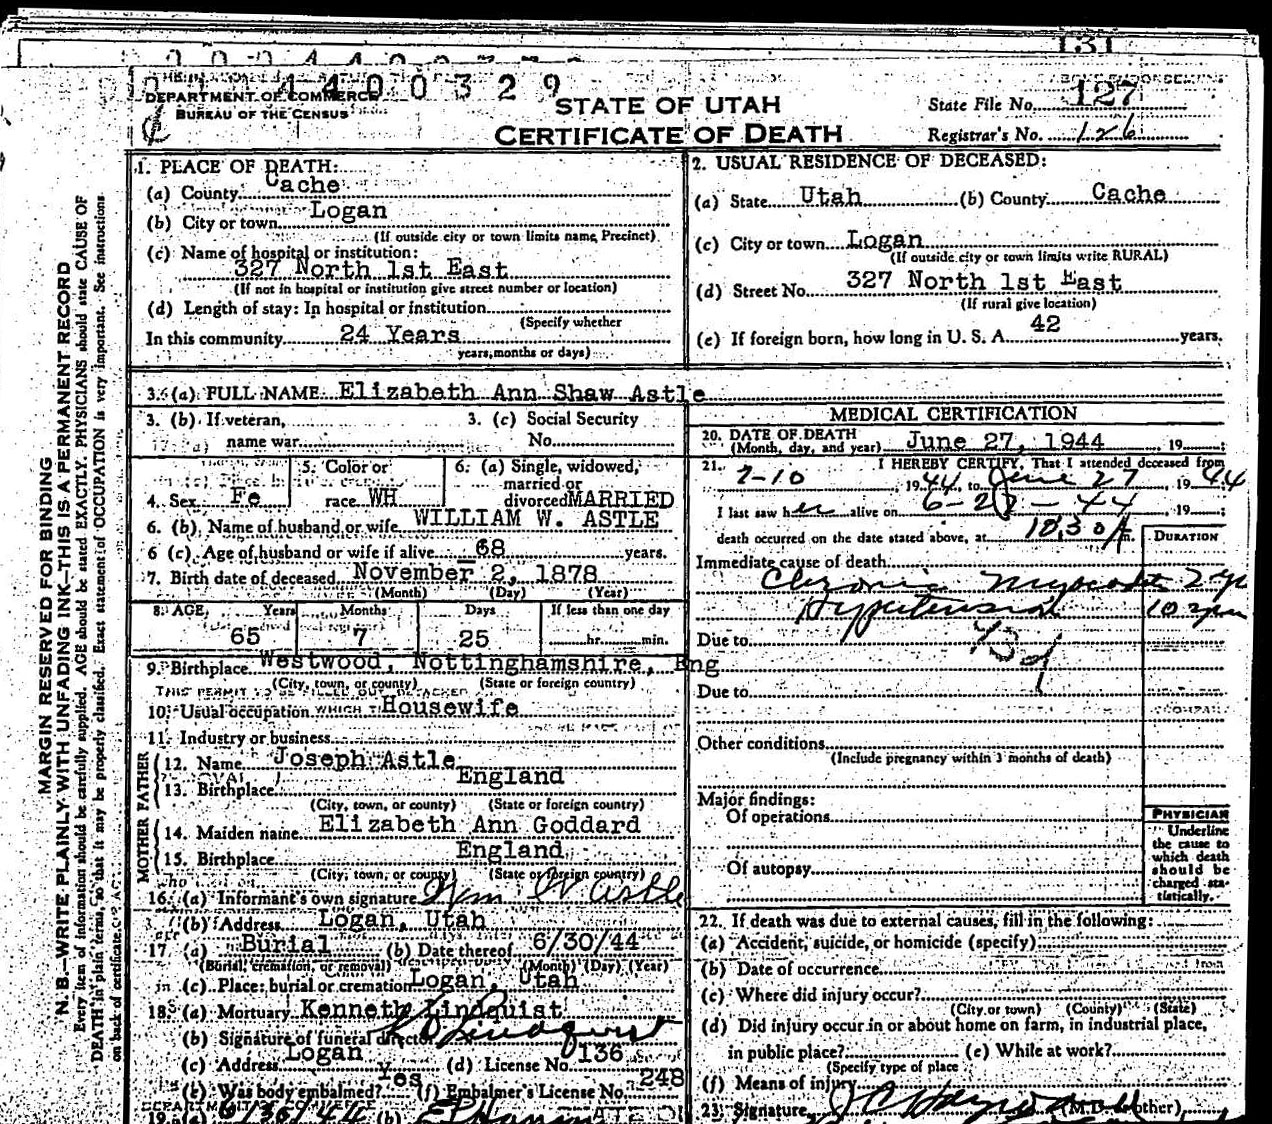 131
4400329
DEPARTMENT OF COMMERCE
BUREAU OF THE CENSUS
STATE OF UTAH
CERTIFICATE OF DEATH
State File No. 127
Registrar's No. 126
MARGIN RESERVED FOR BINDING
N. B.—WRITE PLAINLY WITH UNFADING INK—THIS IS A PERMANENT RECORD
Every item of information should be carefully supplied. AGE should be stated EXACTLY. PHYSICIANS should state CAUSE OF
DEATH in plain terms, so that it may be properly classified. Exact statement of OCCUPATION is very important. See instructions
on back of certificate.
1. PLACE OF DEATH:
(a) County Cache
(b) City or town Logan
(If outside city or town limits name Precinct)
(c) Name of hospital or institution:
327 North 1st East
(If not in hospital or institution give street number or location)
(d) Length of stay: In hospital or institution
(Specify whether
In this community 24 Years
years, months or days)
2. USUAL RESIDENCE OF DECEASED:
(a) State Utah (b) County Cache
(c) City or town Logan
(If outside city or town limits write RURAL)
(d) Street No. 327 North 1st East
(If rural give location)
(e) If foreign born, how long in U. S. A. 42 years.
3. (a) FULL NAME Elizabeth Ann Shaw Astle
3. (b) If veteran, name war
3. (c) Social Security No.
4. Sex Fe
5. Color or race WH
6. (a) Single, widowed, married or divorced MARRIED
6. (b) Name of husband or wife WILLIAM W. ASTLE
6 (c) Age of husband or wife if alive 68 years.
7. Birth date of deceased November 2, 1878
(Month) (Day) (Year)
8. AGE, Years Months Days If less than one day
65 7 25 hr. min.
9. Birthplace Westwood, Nottinghamshire, Eng
(City, town, or county) (State or foreign country)
10. Usual occupation Housewife
11. Industry or business
FATHER
12. Name Joseph Astle
13. Birthplace England
(City, town, or county) (State or foreign country)
MOTHER
14. Maiden name Elizabeth Ann Goddard
15. Birthplace England
(City, town, or county) (State or foreign country)
16. (a) Informant's own signature Wm W Astle
(b) Address Logan, Utah
17. (a) Burial (b) Date thereof 6/30/44
(Burial, cremation, or removal) (Month) (Day) (Year)
(c) Place: burial or cremation Logan, Utah
18. (a) Mortuary Kenneth Lindquist
(b) Signature of funeral director K Lindquist
(c) Address Logan (d) License No. 136
(e) Was body embalmed? Yes (f) Embalmer's License No. 248
19. (a) 6/30/44 (b)
MEDICAL CERTIFICATION
20. DATE OF DEATH
(Month, day, and year) June 27, 1944, 19
21. I HEREBY CERTIFY, That I attended deceased from
2-10 1944, to June 27, 1944
I last saw her alive on 6-27-44, 19
death occurred on the date stated above, at 10:30 A m.
DURATION
Immediate cause of death
Chronic
Hypertension
Due to
Due to
Other conditions
(Include pregnancy within 3 months of death)
Major findings:
Of operations
Of autopsy
PHYSICIAN
Underline
the cause to
which death
should be
charged sta-
tistically.
22. If death was due to external causes, fill in the following:
(a) Accident, suicide, or homicide (specify)
(b) Date of occurrence
(c) Where did injury occur?
(City or town) (County) (State)
(d) Did injury occur in or about home on farm, in industrial place,
in public place? (e) While at work?
(Specify type of place
(f) Means of injury
23. Signature (M.D. or other)